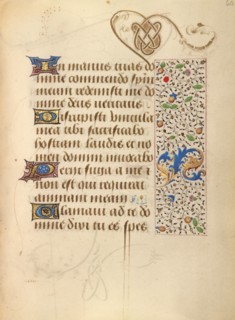 In manus tuas do
mine commendo spm̄
meum redemisti me do
mine deus veritatis
Disrupisti vincula
mea tibi sacrificabo
hostiam laudis et no
men domini invocabo
Periit fuga a me et
non est qui requirat
animam meam
Clamavi ad te do
mine dixi tu es spes